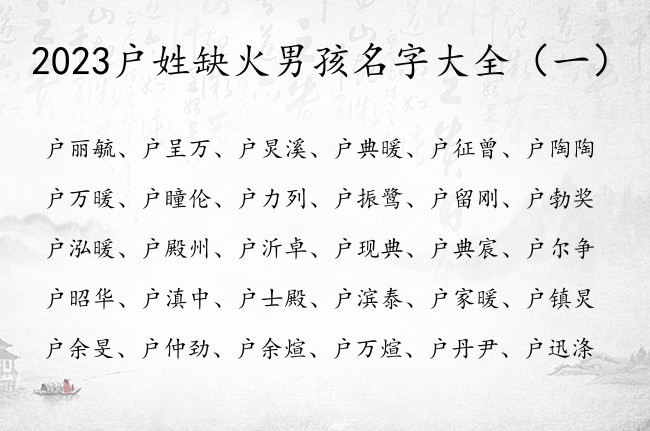 2023户姓缺火男孩名字大全（一）
户丽毓、户呈万、户炅溪、户典暖、户征曾、户陶陶
户万暖、户瞳伦、户力列、户振鹭、户留刚、户勃奖
户泓暖、户殿州、户沂卓、户现典、户典宸、户尔争
户昭华、户滇中、户士殿、户滨泰、户家暖、户镇炅
户余旻、户仲劲、户余煊、户万煊、户丹尹、户迅涤